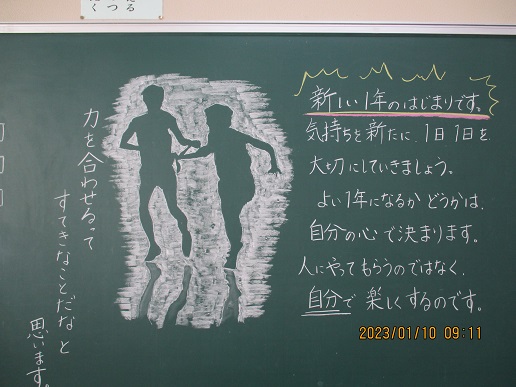 新しい1年のはじまりです。
気持ちを新たに、1日1日を
大切にしていきましょう。
よい1年になるかどうかは、
自分の心で決まります。
人にやってもらうのではなく、
自分で楽しくするのです。
力を合わせるって
すてきなことだなと
思います。
2023/01/10 09:11